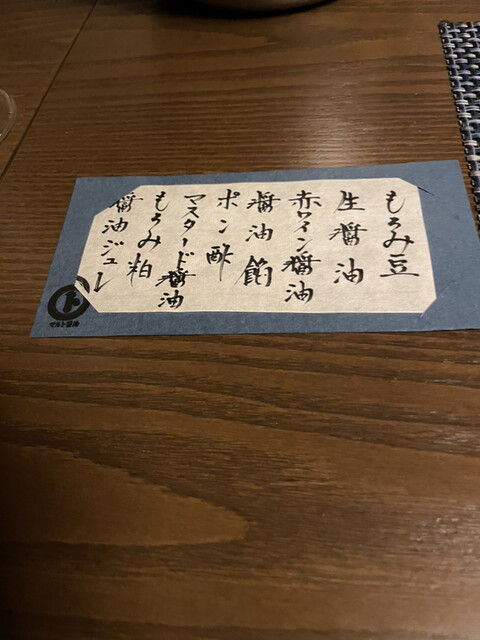 もろみ豆
生醤油
赤ワイン醤油
醤油餡
ポン酢
マスタード醤油
もろみ粕
醤油ジュレ
ト
マルト醤油